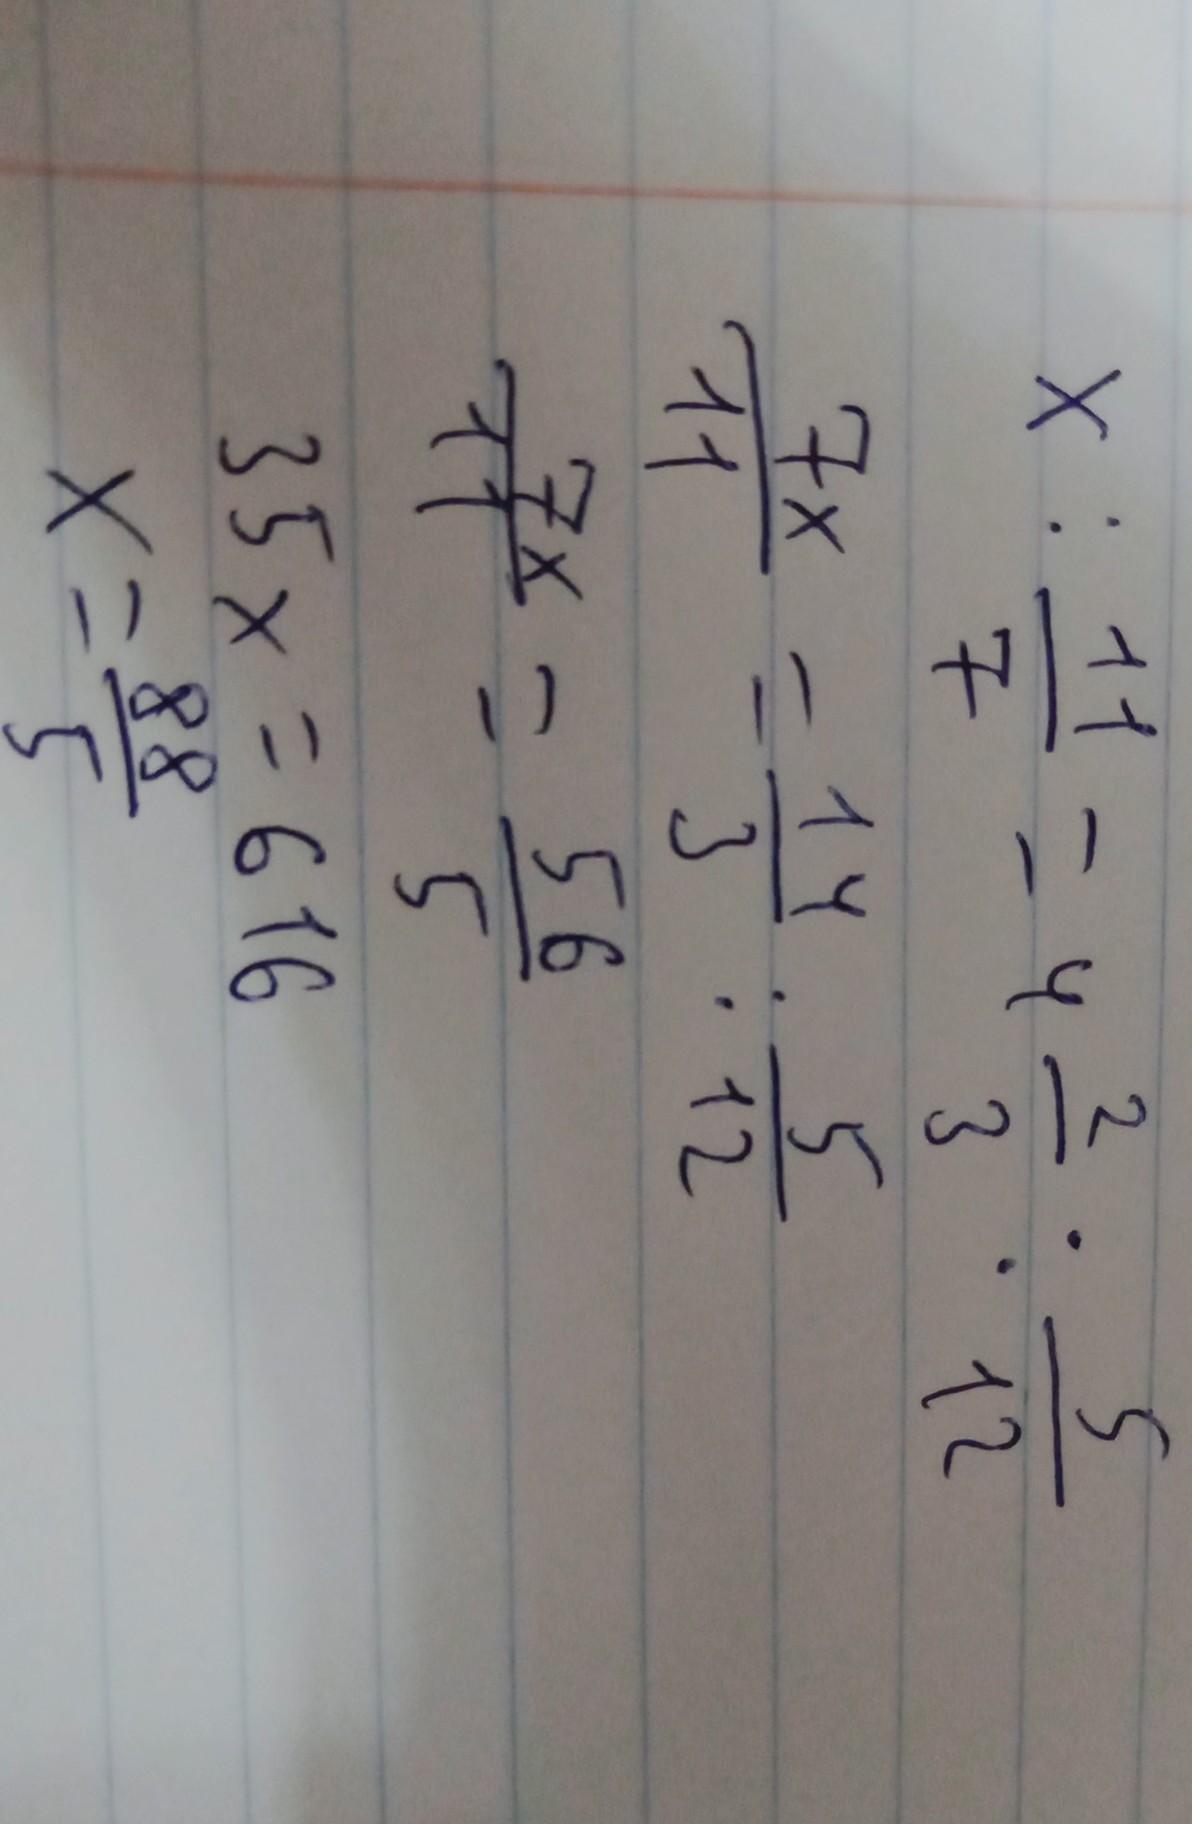 x : 11/7 = 4 2/3 : 5/12
7x/11 = 14/3 : 5/12
7x/11 = 56/5
35x = 616
x = 88/5